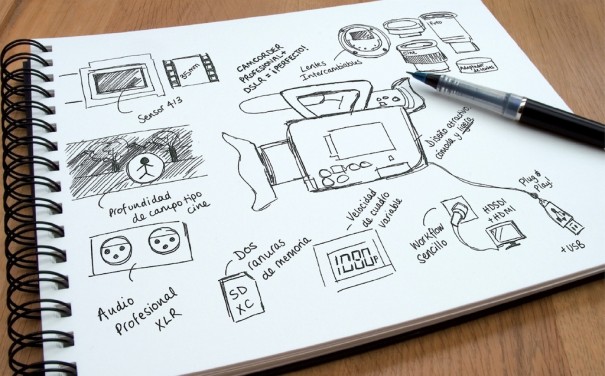 35mm
Sensor 4/3
CAMCORDER
PROFESIONAL+
DSLR = ¡PERFECTO!
Lentes
Intercambiables
Diseño atractivo
Profundidad
de campo tipo
cine
Audio
Profesional
XLR
Dos
ranuras
de memoria
SD
XC
Velocidad
de cuadro
variable
1080p
Workflow
sencillo
HDSDI
+HDMI
Plug &
Play!
+ USB